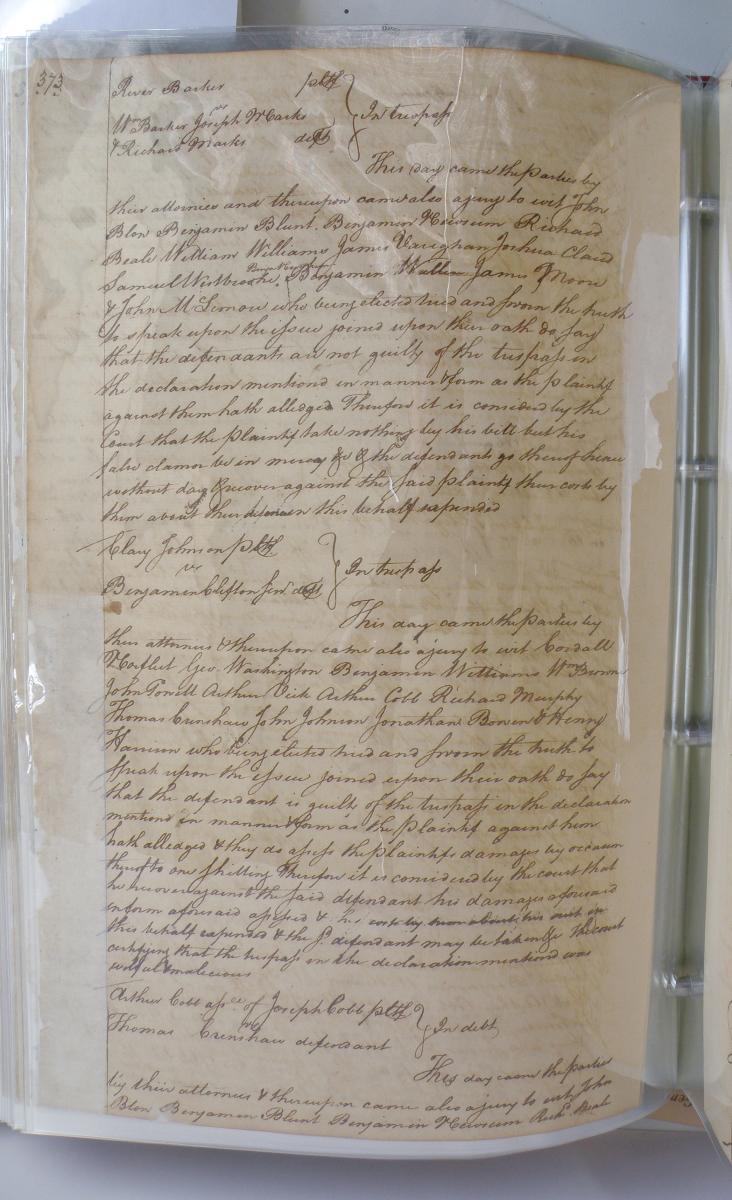 373
River Barker pltf
vs
Wm Barker Joseph Marks
& Richard Marks deft
In trespass
This day came the parties by
their attornies and thereupon came also a jury to wit John
Blow Benjamin Blunt. Benjamin Newsum Richard
Beale William Williams James Vaughan Joshua Claud
Samuel Westbrooke, Benjamin James Moore
& John McLemore who being elected tried and sworn the truth
to speak upon the issue joined upon their oath do say
that the defendants are not guilty of the trespass in
the declaration mentiond in manner & form as the plaintif
against them hath alledged Therefore it is considerd by the
Court that the plaintif take nothing by his bill but his
false clamor be in mercy &c & the defendants go thereof hence
without day & recover against the said plaintif their costs by
them about their defence in this behalf expended
Clary Johnson pltf
vs
Benjamin Clifton Junr deft
In trespass
This day came the parties by
their attornies & thereupon came also a jury to wit Cordall
Norfleet Geo. Washington Benjamin Williams Wm Brown
John Powell Arthur Vick Arthur Cobb Richard Murphy
Thomas Crenshaw John Johnson Jonathan Bowen & Henry
Harrison who being elected tried and sworn the truth to
speak upon the issue joined upon their oath do say
that the defendant is guilty of the trespass in the declaration
mentiond in manner & form as the plaintif against him
hath alledged & they do assess the plaintifs damages by occasion
thereof to one shilling Therefore it is considered by the court that
he recover against the said defendant his damages aforesaid
in form aforesaid assessed & his costs by him about his suit in
this behalf expended & the sd defendant may be taken &c The court
certifying that the trespass in the declaration mentiond was
wilful & malecious
Arthur Cobb assee of Joseph Cobb pltf
vs
Thomas Crenshaw defendant
In debt
This day came the parties
by their attornies & thereupon came also a jury to wit John
Blow Benjamin Blunt Benjamin Newsum Richd Beale